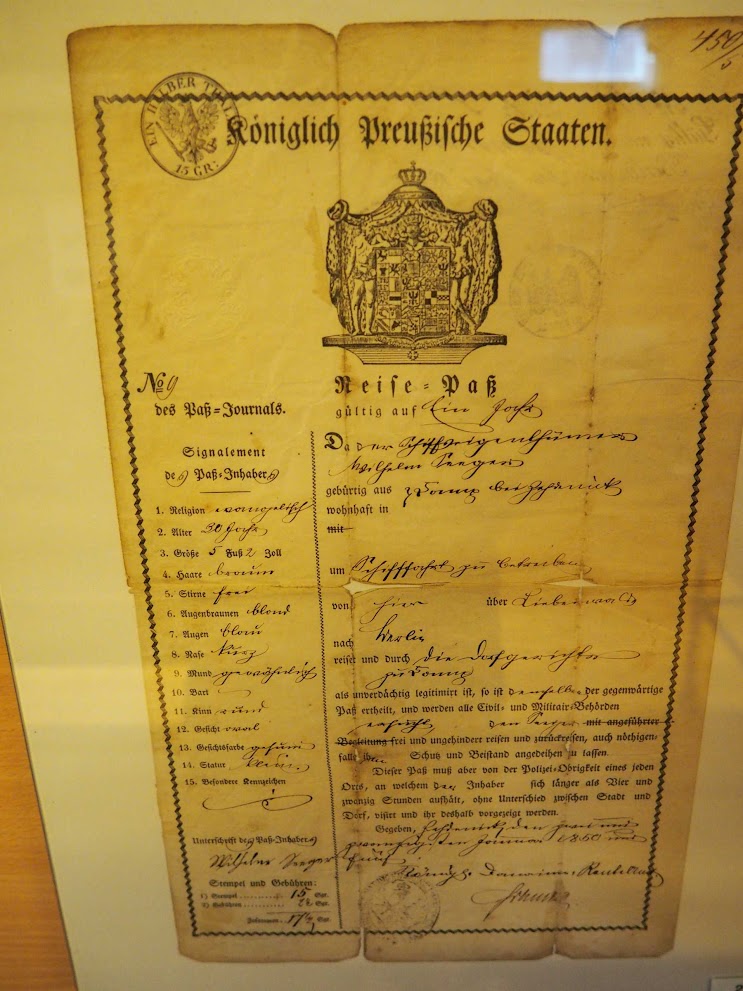 450/5
EIN HALBER THALER
15 GR:
Königlich Preußische Staaten.
No 9
des Paß-Journals.
Signalement
des Paß-Inhabers
1. Religion evangelisch
2. Alter 30 Jahr
3. Größe 5 Fuß 2 Zoll
4. Haare braun
5. Stirne frei
6. Augenbraunen blond
7. Augen blau
8. Nase kurz
9. Mund gewöhnlich
10. Bart
11. Kinn rund
12. Gesicht oval
13. Gesichtsfarbe gesund
14. Statur klein.
15. Besondere Kennzeichen
Unterschrift des Paß-Inhabers
Wilhelm Seeger
Stempel und Gebühren:
1) Stempel 15 Sgr.
2) Gebühren Sgr.
Zusammen Sgr.
Reise-Paß
gültig auf Ein Jahr
Da der Schiffseigenthümer
Wilhelm Seeger
gebürtig aus bei Zehdenick
wohnhaft in
mit
um Schifffahrt zu betreiben
von hier über Liebenwalde
nach Berlin
reiset und durch die Dorfgerichte
zu
als unverdächtig legitimirt ist, so ist demselben der gegenwärtige
Paß ertheilt, und werden alle Civil- und Militair-Behörden
ersucht, den Seeger mit angeführter
Begleitung frei und ungehindert reisen und zurückreisen, auch nöthigen-
falls ihm Schutz und Beistand angedeihen zu lassen.
Dieser Paß muß aber von der Polizei-Obrigkeit eines jeden
Orts, an welchem der Inhaber sich länger als Vier und
zwanzig Stunden aufhält, ohne Unterschied zwischen Stadt und
Dorf, visirt und ihr deshalb vorgezeigt werden.
Gegeben, Zehdenick, den zwei und
zwanzigsten Januar 1850 und
fünf
Königl. Domainen-Rentamt